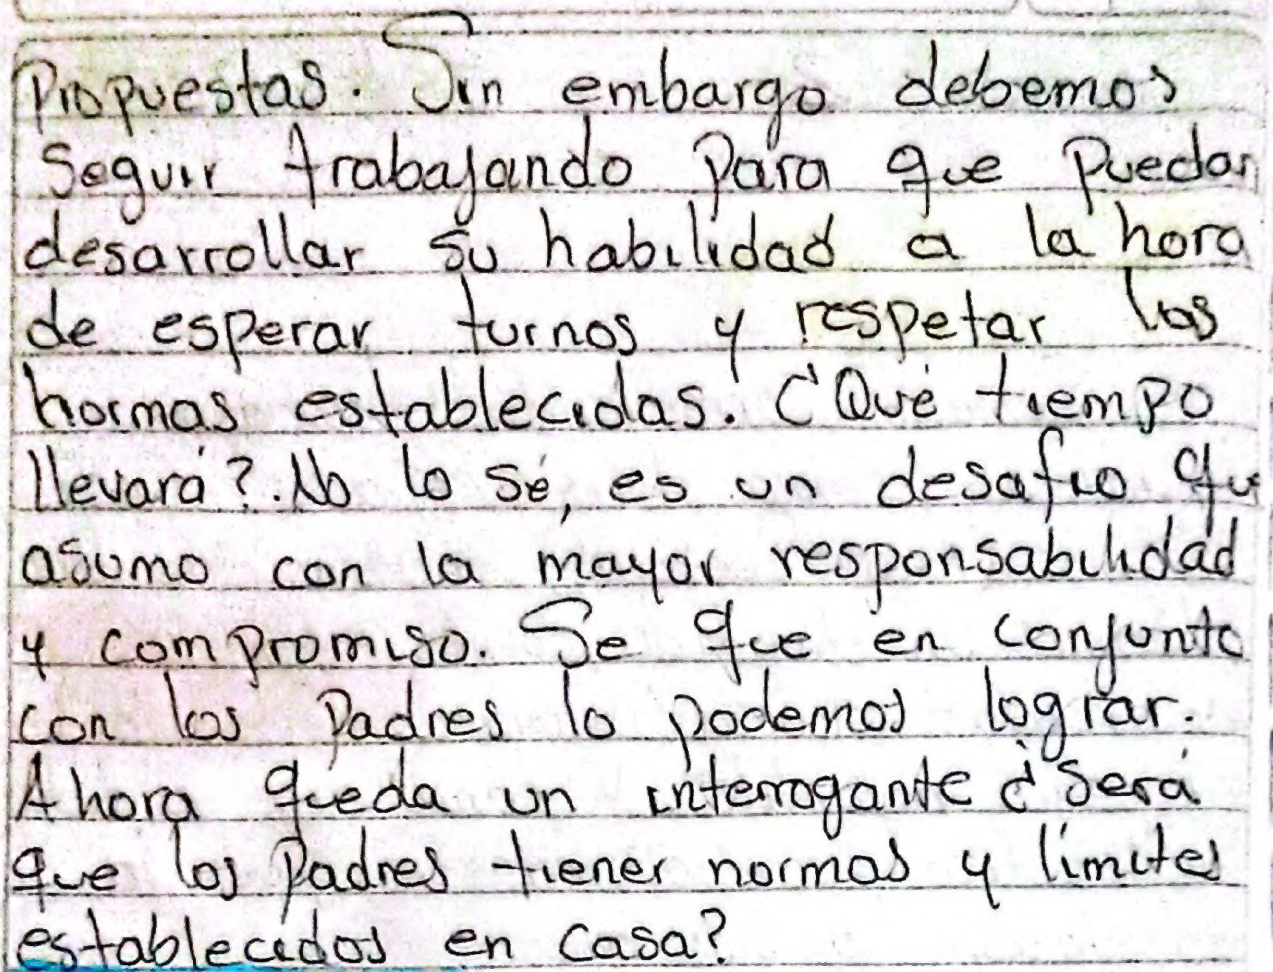 Propuestas. Sin embargo debemos
seguir trabajando para que puedan
desarrollar su habilidad a la hora
de esperar turnos y respetar las
normas establecidas. ¿Qué tiempo
llevará?. No lo sé, es un desafio que
asumo con la mayor responsabilidad
y compromiso. Se que en conjunto
con los Padres lo podemos lograr.
Ahora queda un interrogante ¿Será
que los Padres tienen normas y límites
establecidos en casa?